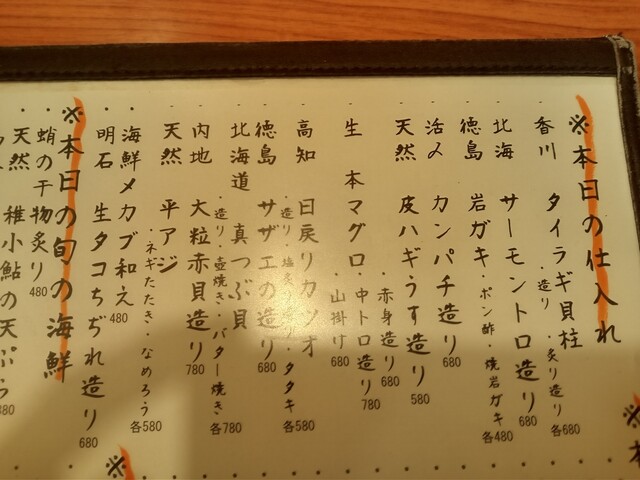 ※本日の仕入れ
・香川 タイラギ貝柱
・造り ・炙り造り 各680
・北海 サーモントロ造り 680
・徳島 岩ガキ・ポン酢・焼岩ガキ 各480
・活〆 カンパチ造り 680
・天然 皮ハギうす造り 580
・生 本マグロ
・赤身造り 680
・中トロ造り 780
・山掛け 680
・高知 日戻りカツオ
・造り・塩炙り・タタキ 各580
・徳島 サザエの造り 680
・北海道 真つぶ貝
・造り・壺焼き・バター焼き 各780
・内地 大粒赤貝造り 780
・天然 平アジ
・ネギたたき・なめろう 各580
・海鮮メカブ和え 480
・明石 生タコちぎれ造り 680
※本日の旬の海鮮
・蛸の干物炙り 480
・天然 稚小鮎の天ぷら
※
※